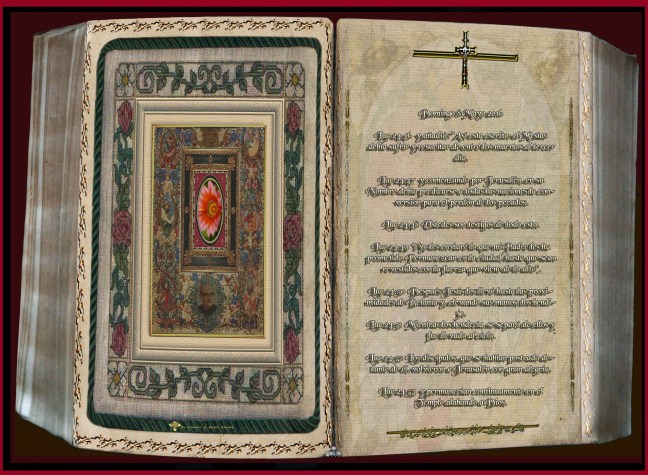 Domingo 8 Mayo 2016
Luc 24,46 y añadió: "Así está escrito: el Mesías
debía sufrir y resucitar de entre los muertos al tercer
día,
Luc 24,47 y comenzando por Jerusalén, en su
Nombre debía predicarse a todas las naciones la con-
versión para el perdón de los pecados.
Luc 24,48 Ustedes son testigos de todo esto.
Luc 24,49 Y yo les enviaré lo que mi Padre les ha
prometido. Permanezcan en la ciudad, hasta que sean
revestidos con la fuerza que viene de lo alto".
Luc 24,50 Después Jesús los llevó hasta las proxi-
midades de Betania y, elevando sus manos, los bendi-
jo.
Luc 24,51 Mientras los bendecía, se separó de ellos y
fue llevado al cielo.
Luc 24,52 Los discípulos, que se habían postrado de-
lante de él, volvieron a Jerusalén con gran alegría,
Luc 24,53 y permanecían continuamente en el
Templo alabando a Dios.